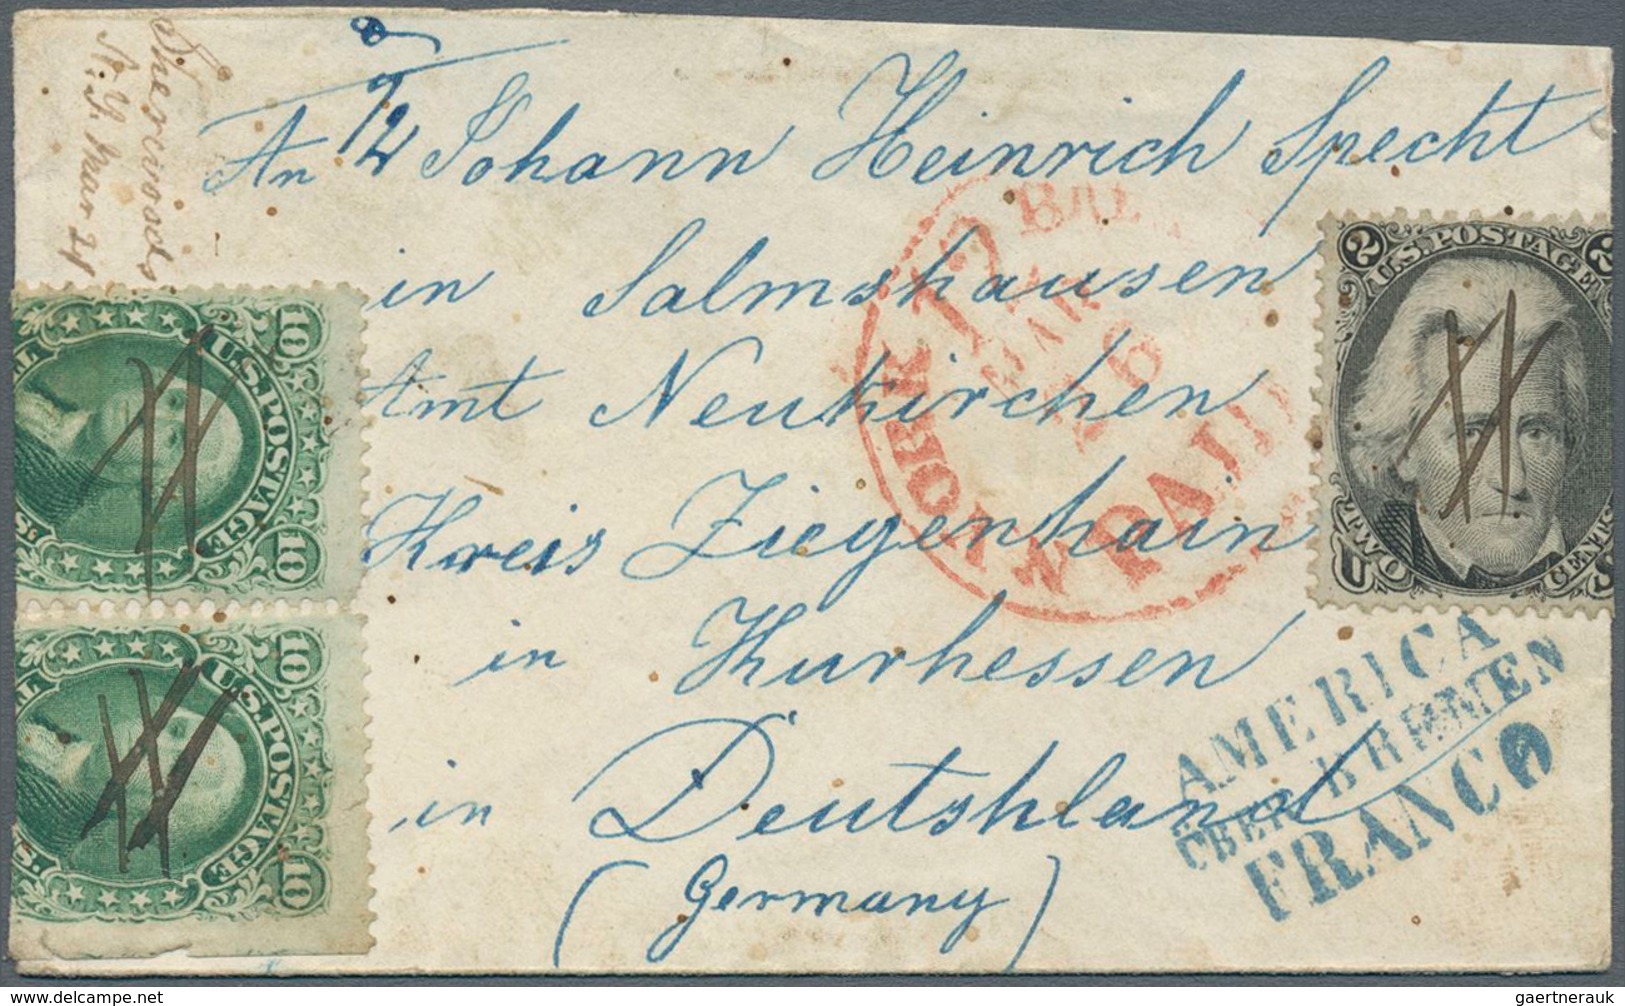 Sherwoods
N.Y. Mar 21
An Johann Heinrich Specht
in Salmshausen
Amt Neukirchen
Kreis Ziegenhain
in Kurhessen
in Deutshland
(Germany)
YORK 12
MAR
26
PAID
10 U.S. POSTAGE 10
10 U.S. POSTAGE 10
2 U.S. POSTAGE 2
U TWO CENTS S
AMERICA
ÜBER BREMEN
FRANCO
www.delcampe.net
gaertnerauk